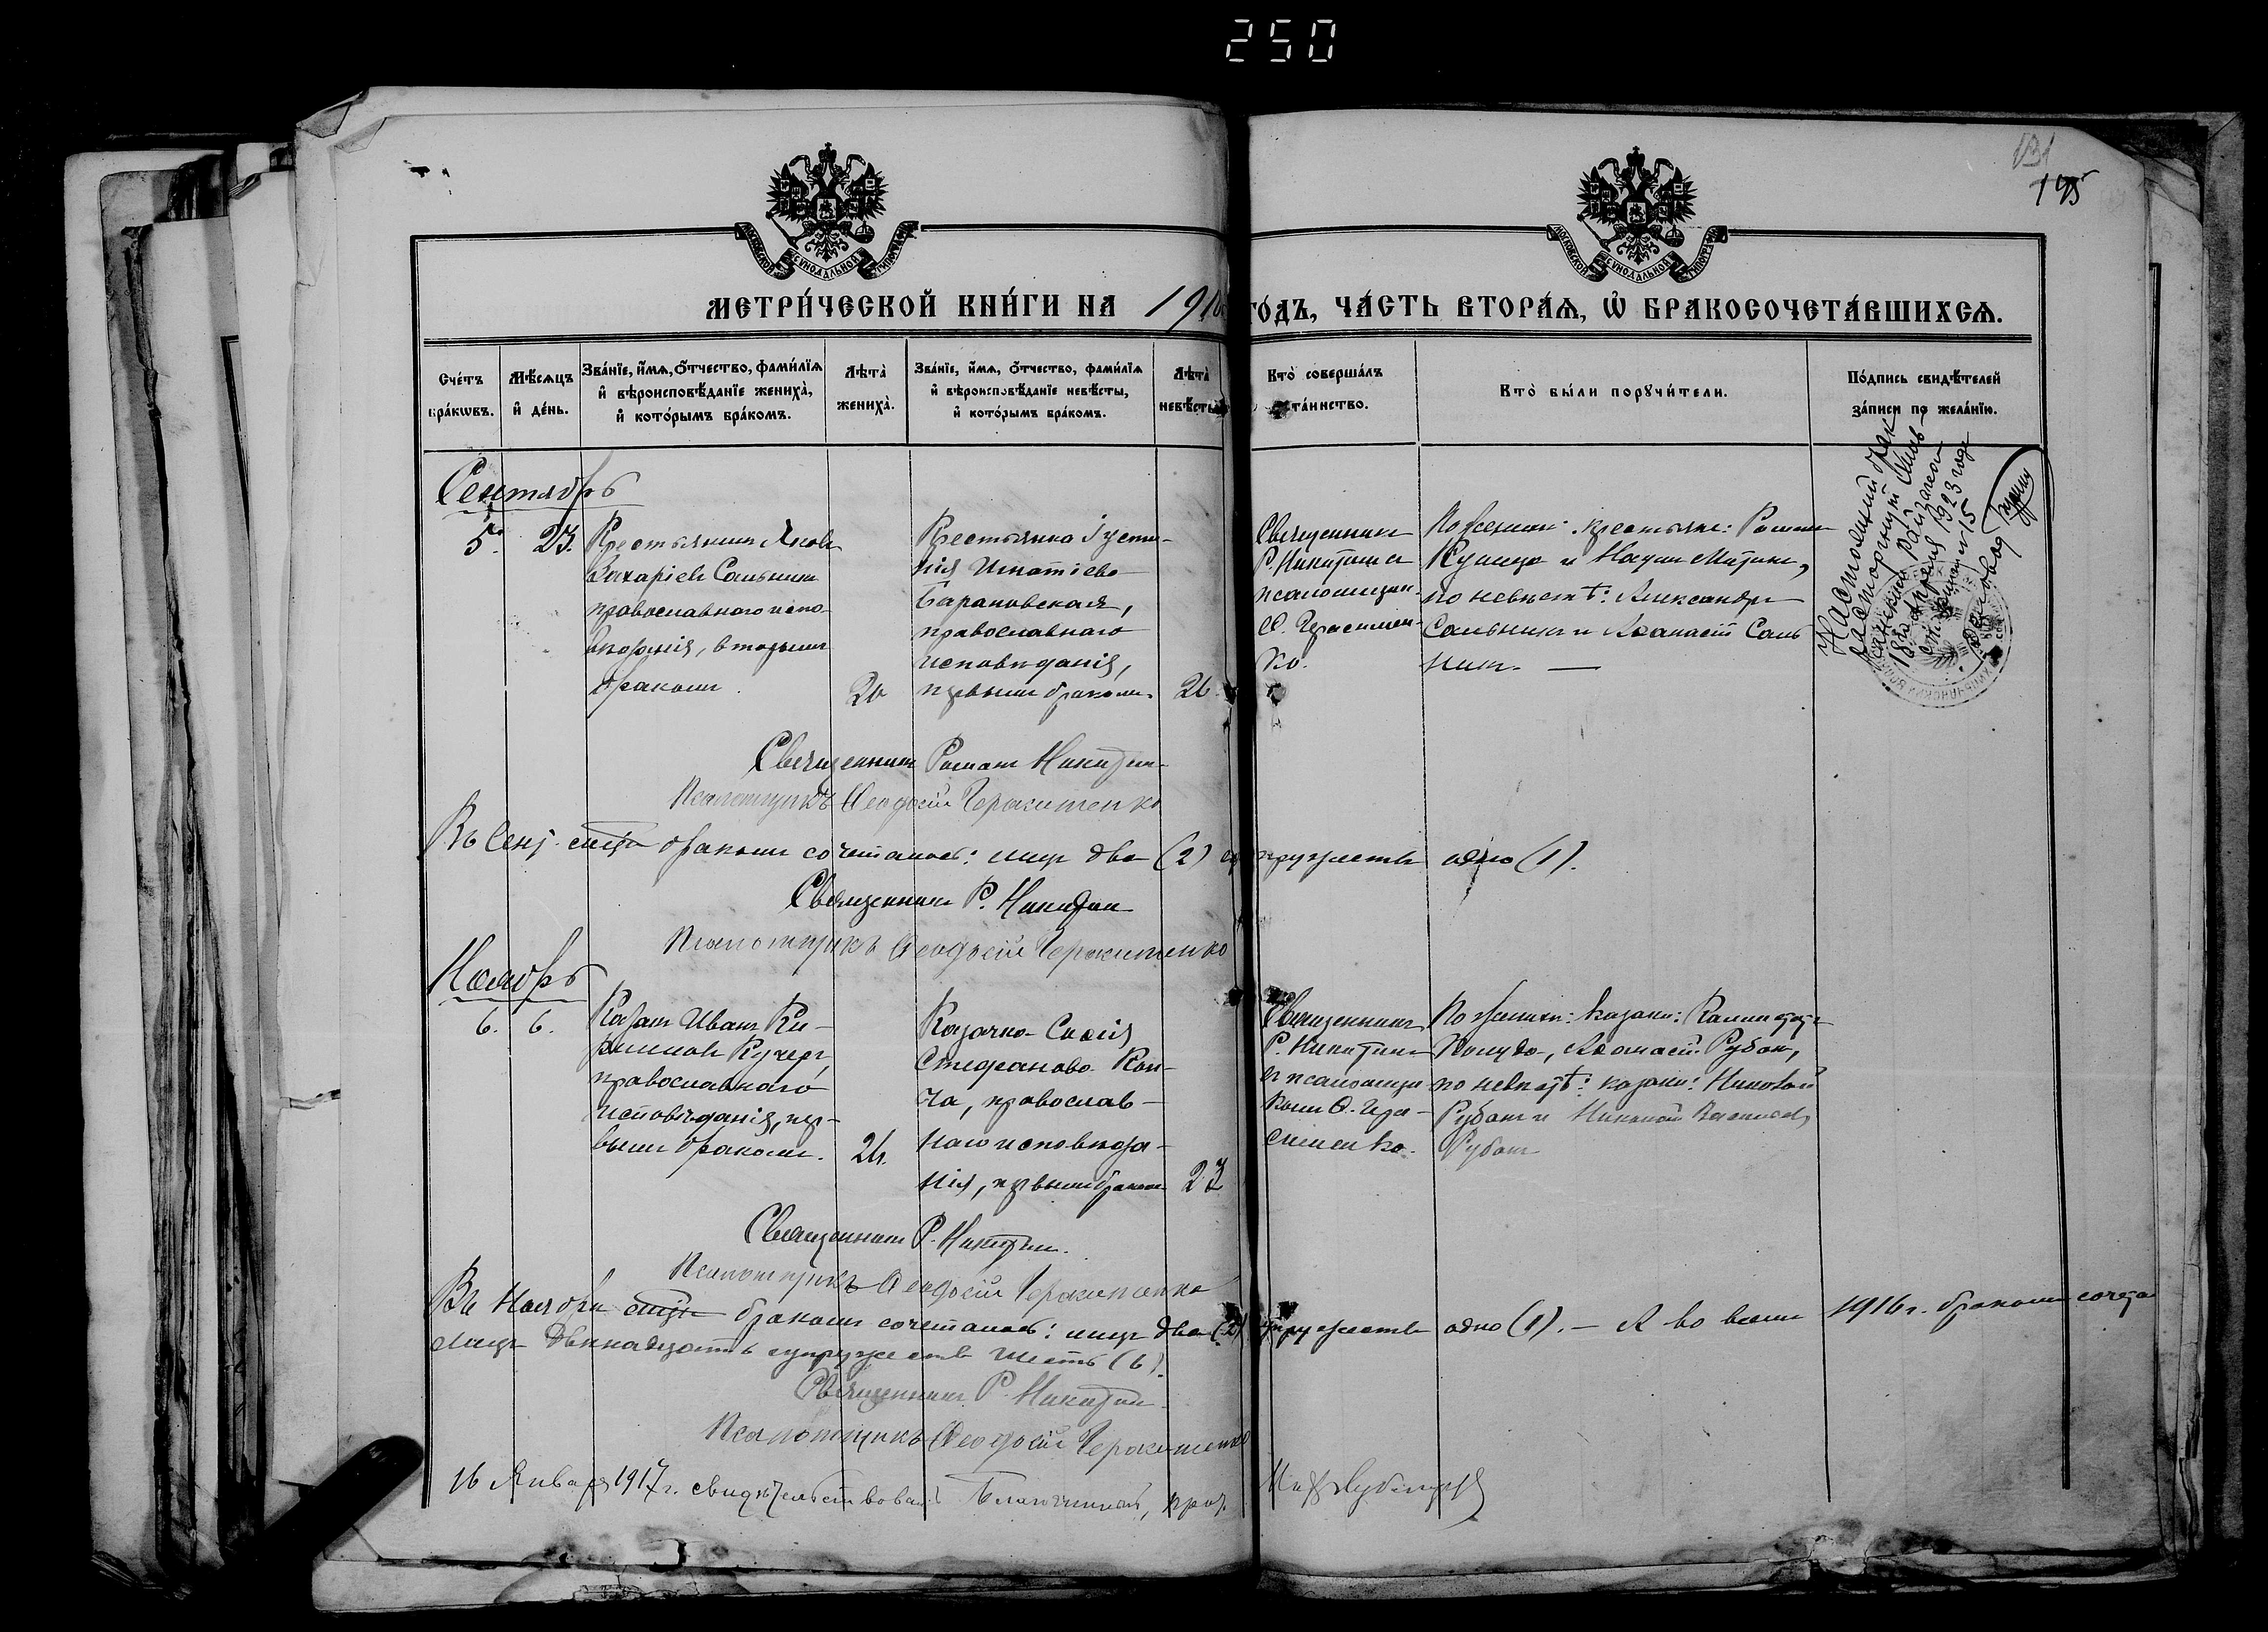 250
131
175
МОСКОВСКОЙ СѴНОДАЛЬНОЙ ТИПОГРАФІИ
МОСКОВСКОЙ СѴНОДАЛЬНОЙ ТИПОГРАФІИ
МЕТРИ́ЧЕСКОЙ КНИ́ГИ НА 1916 ГО́ДЪ, ЧА́СТЬ ВТОРА́Ѧ, Ѽ БРАКОСОЧЕТА́ВШИХСѦ.
Сче́тъ бра́кѡвъ.
Мѣ́сѧцъ и҆ де́нь.
Зва́нїе, и҆́мѧ, о҆́тчество, фами́лїѧ и҆ вѣроисповѣ́данїе жениха̀, и҆ кото́рымъ бра́комъ.
Лѣта̀ жениха̀.
Зва́нїе, и҆́мѧ, о҆́тчество, фами́лїѧ и҆ вѣроисповѣ́данїе невѣ́сты, и҆ кото́рымъ бра́комъ.
Лѣта̀ невѣ́сты.
Кто̀ соверша́лъ та́инство.
Кто̀ бы́ли порꙋчи́тели.
По́дпись свидѣ́телей за́писи по жела́нїю.
Сентябрь
5. 23.
Крестьянин Яков
Захаріев Сальник
православнаго испо-
вѣданія, вторым
браком.
Крестьянка Іусти-
нія Игнатіева
Барановская,
православнаго
исповѣданія,
первым браком.
26.
Священник
Р. Никитин и
псаломщик
Ѳ. Герасимен-
ко.
По женихѣ: крестьяне: Роман
и
по невѣстѣ: Александр
Сальник и Аѳанасій Саль
ник. —
Настоящий брак
расторгнут
1923 года
№ 15
Священник Роман Никитин
Псаломщикъ Ѳеодосій Герасименко
Въ Сент. сего браком сочеталось: лиц два (2) супружеств одно (1).
Священник Р. Никитин
Псаломщикъ Ѳеодосій Герасименко
Ноябрь
6. 6.
Казак Иван Ки-
риллов Кучер,
православнаго
исповѣданія, пер-
вым браком.
24.
Казачка Софія
Стефанова Кон-
ча, православ-
наго исповѣда-
нія, первым браком
23
Священник
Р. Никитин
и псаломщи
ком Ѳ. Гера-
сименко.
По женихѣ: казаки: Каллистрат
Аѳанасій Рубан,
по невѣстѣ: казаки: Николай
Рубан и Николай Васильев
Рубан
Священник Р. Никитин.
Псаломщикъ Ѳеодосій Герасименко
Въ Ноябрѣ браком сочеталось: лиц два (2) супружеств одно (1). — А во всем 1916 г. браком сочета
лиц двѣнадцать супружеств шесть (6).
Священник Р. Никитин.
Псаломщикъ Ѳеодосій Герасименко
16 Января 1917 г. свидѣтельствовал Благочинный, прот.